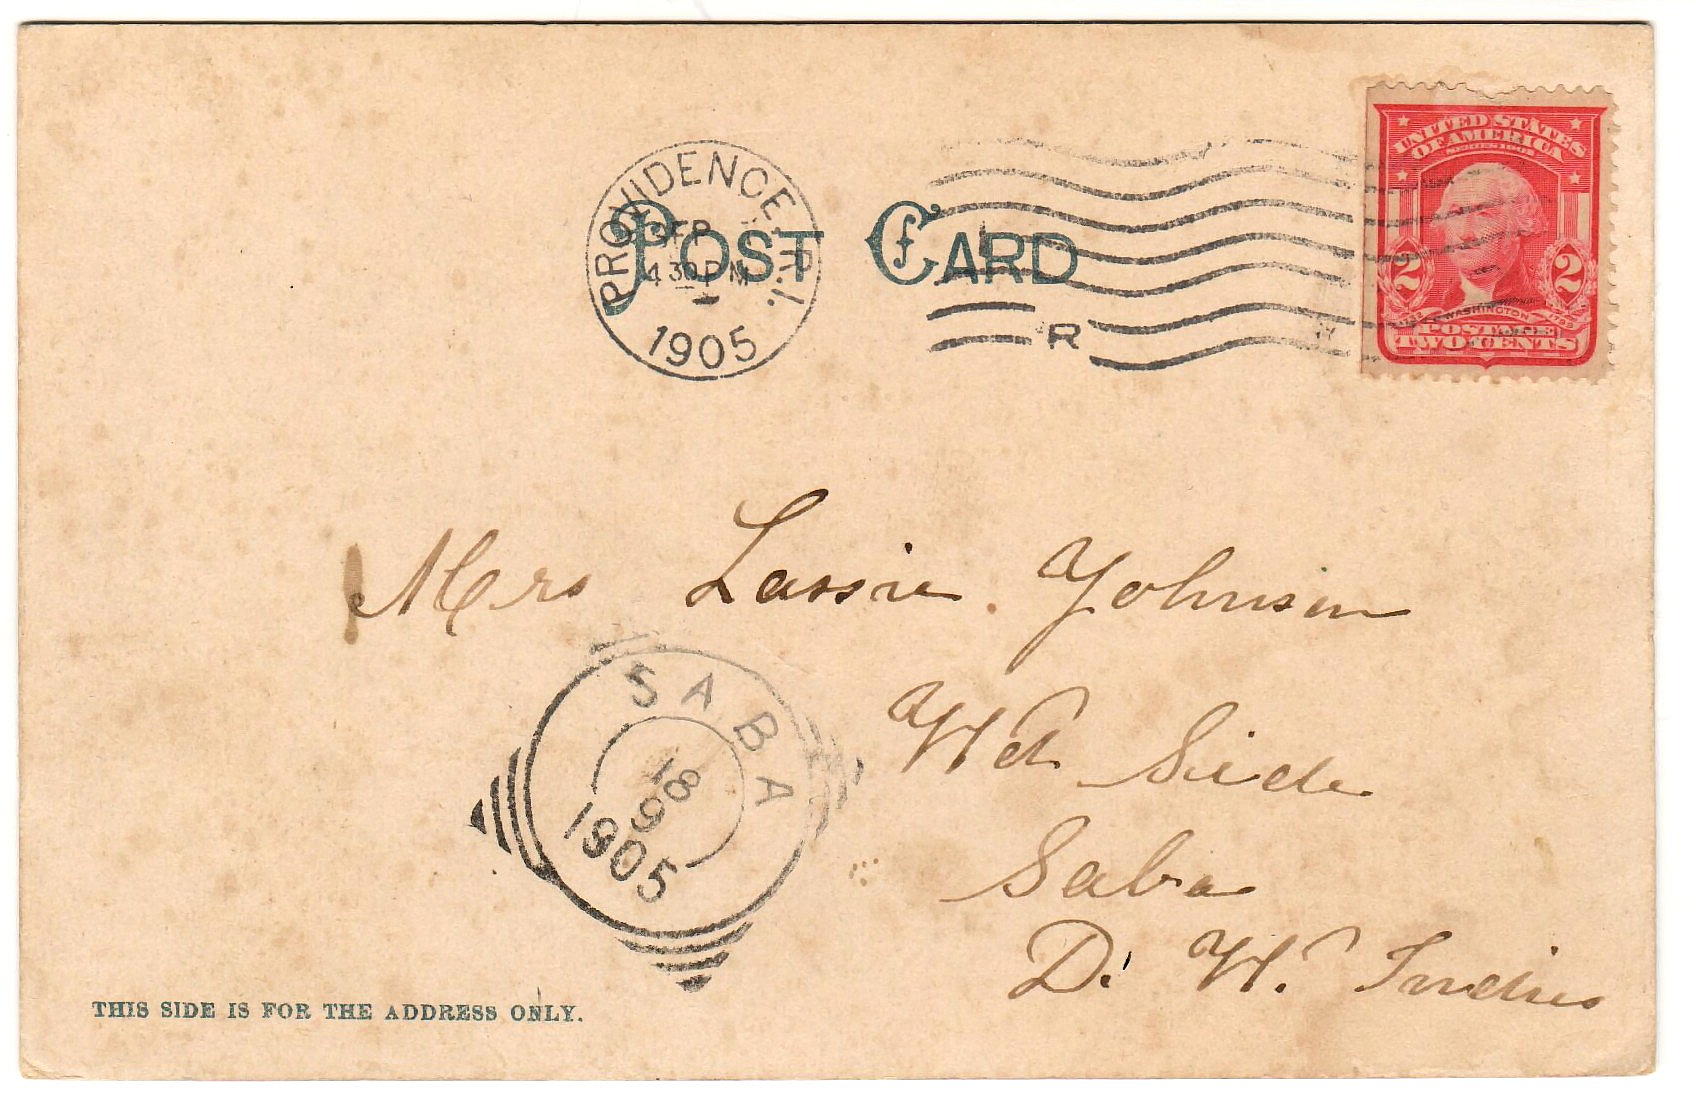 PROVIDENCE, R.I.
SEP
4 30 P M
1905
POST CARD
R
UNITED STATES
OF AMERICA
SERIES 1902
2 2
1732 WASHINGTON 1799
POSTAGE
TWO CENTS
Mrs Lassie Johnson
Wd Side
Saba
D. W. Indies
SABA
18
9
1905
THIS SIDE IS FOR THE ADDRESS ONLY.